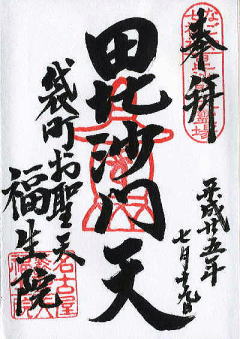 奉拝
平成廿五年
七月十九日
毘沙門天
袋町お聖天
福生院